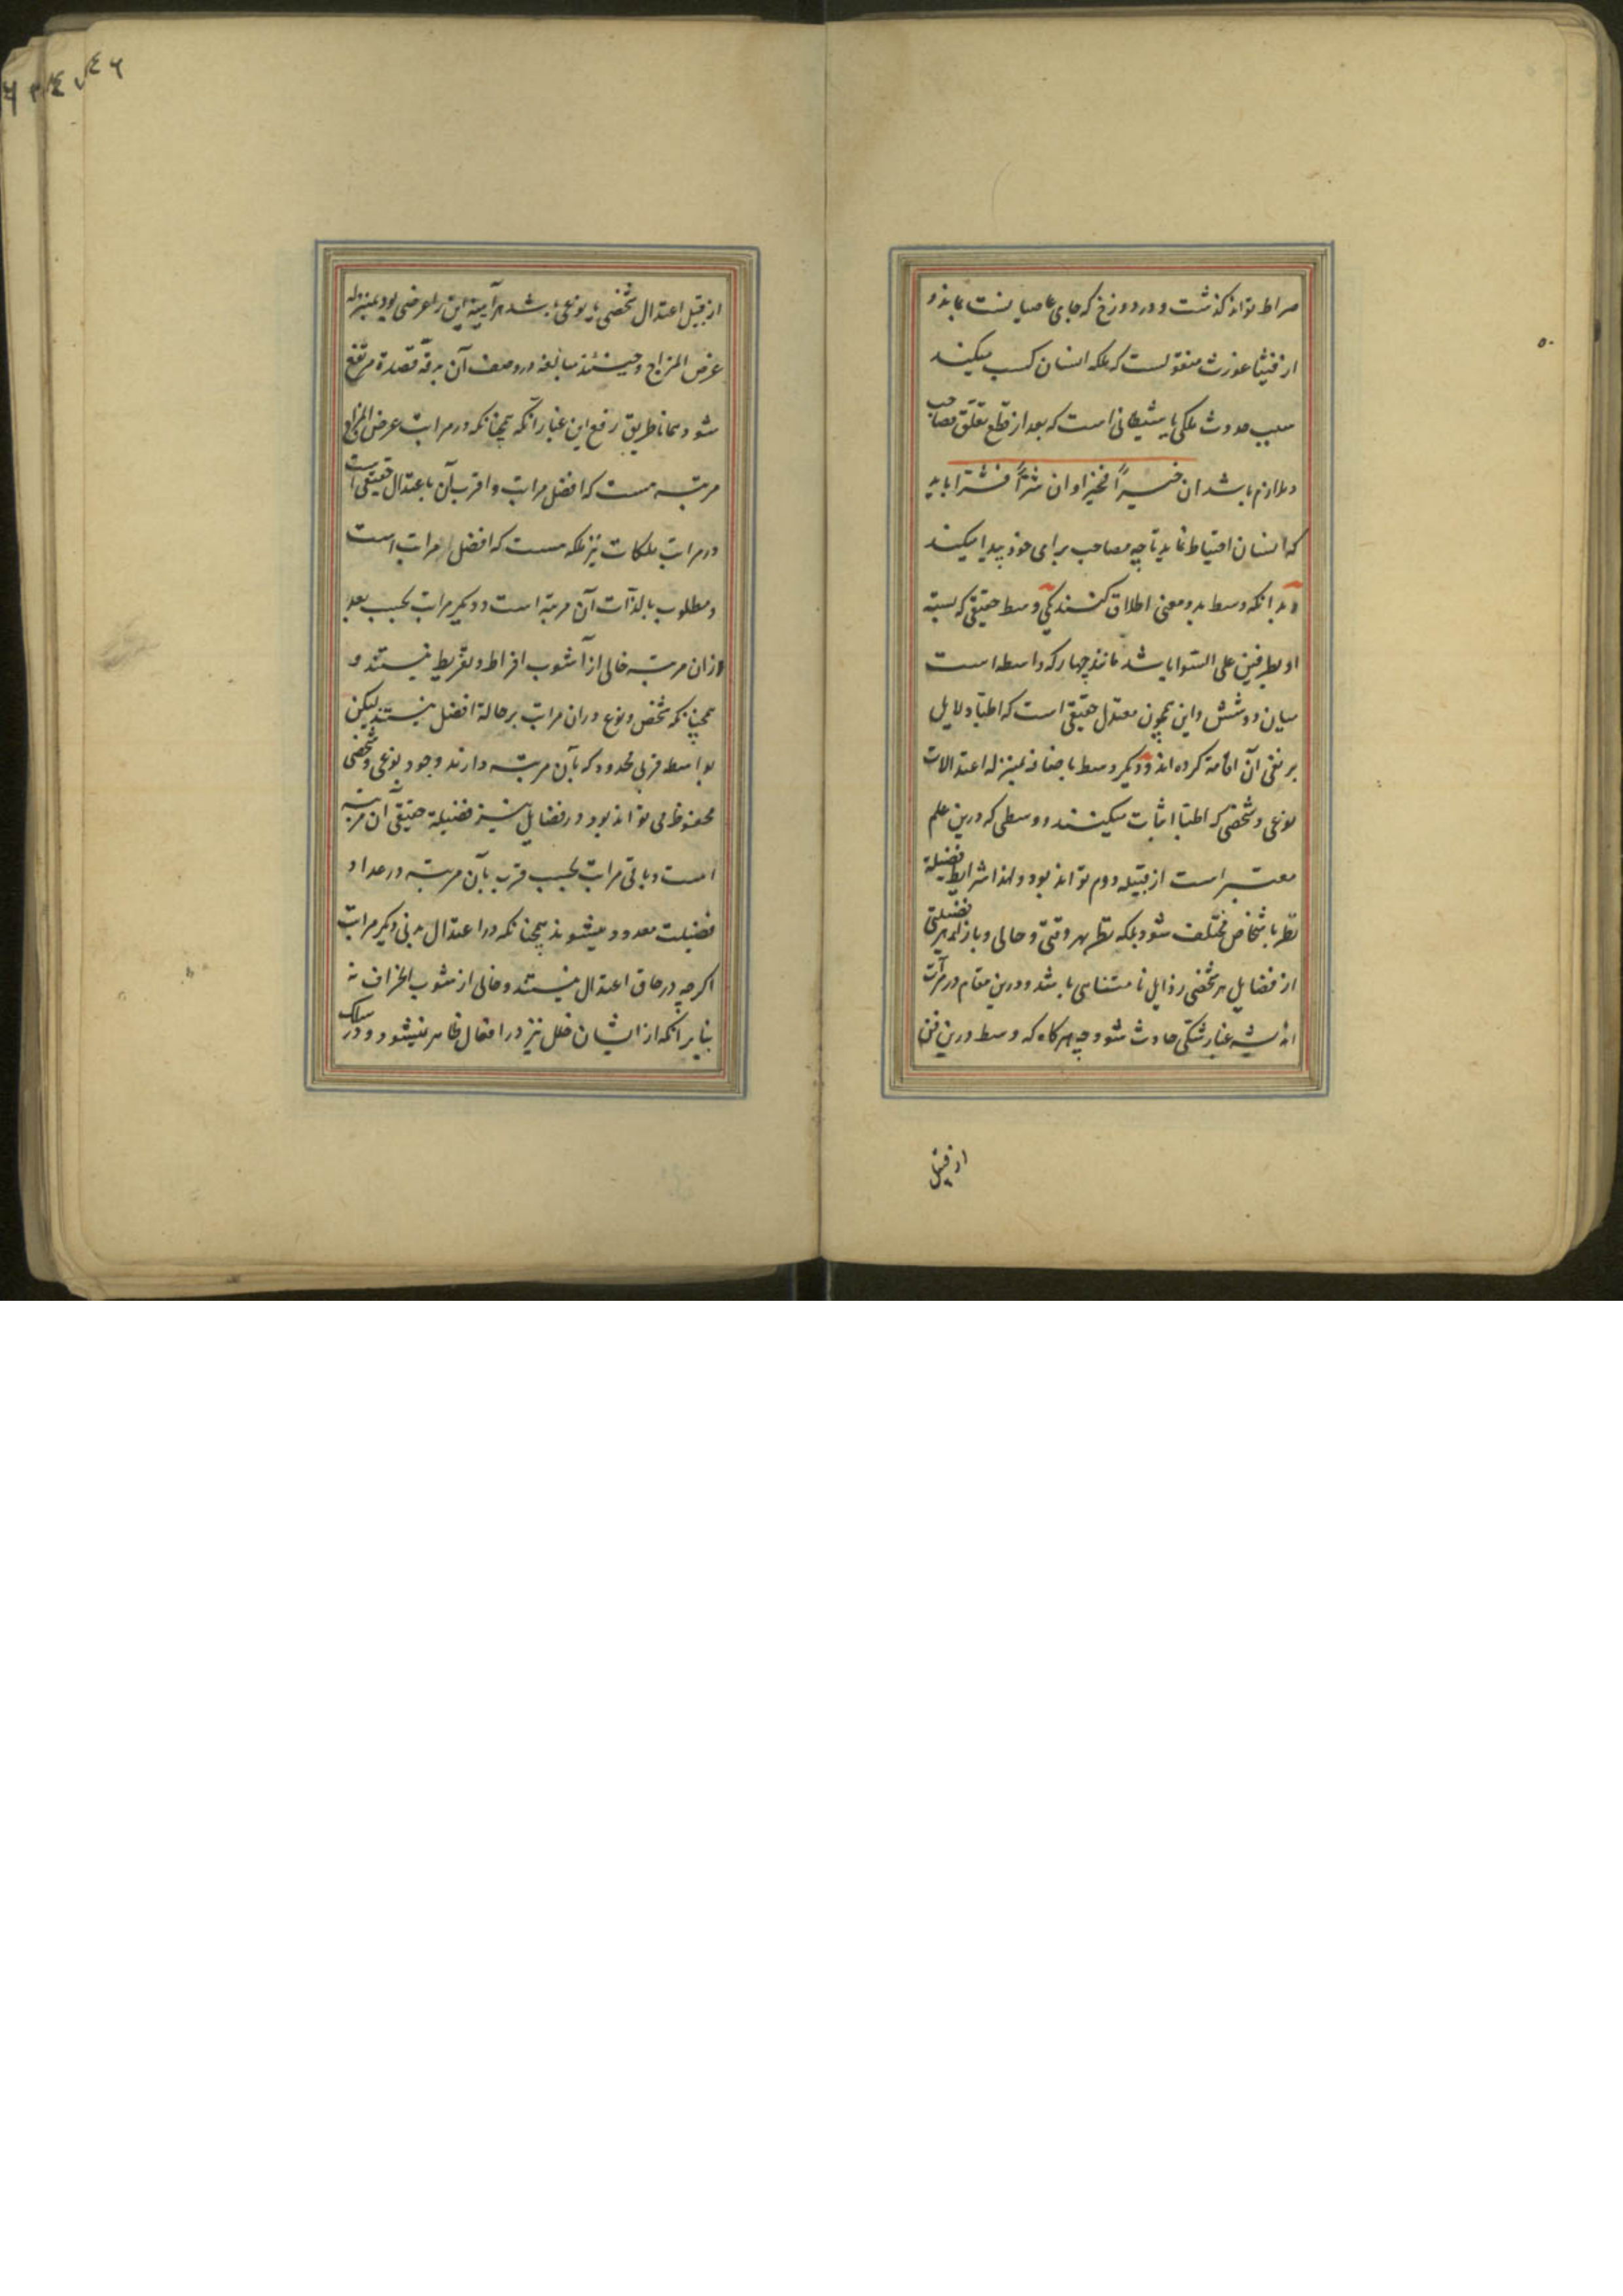 صراط تواند كذشت و در دوزخ كه جاى عاصيانست بماند و
از فيثاغورث منقولست كه ملكه انسان كسب ميكند
سبب حدوث ملكى يا شيطانى است كه بعد از قطع تعلق مصاحب
و ملازم باشد ان خيراً فخير او ان شراً فشر ا بايد
كه انسان احتياط نمايد تا چه مصاحب براى خود پيدا ميكند
و بدانكه وسط بدو معنى اطلاق كنند يكى وسط حقيقى كه نسبة
او بطرفين على السوا باشد مانند چهار كه واسطه است
ميان دو و شش و اين همچون معتدل حقيقى است كه اطبا دلايل
بر نفى آن اقامة كرده اند و ديكر وسط باضافه بمنزله اعتدالات
نوعى و شخصى كه اطبا اثبات ميكنند و وسطى كه درين علم
معتبر است از قبيله دوم تواند بود و لهذا شرايط فضيلة
نظر باشخاص مختلف شود بلكه نظر بهر وقتى و حالى و بازاء هر فضيلتى
از فضايل هر شخصى رذايل نامتناهى باشد و درين مقام در مرآت
انديشه غبار شكى حادث شود چه هركاه كه وسط درين فن
از قبيل
٥٠
از قبيل اعتدال شخصى يا نوعى باشد هرآيينه اين را عرضى بود بمنزله
عرض المزاج و حينئذ مبالغه در وصف آن بدقة قصدة مرتفع
شود همانا طريق رفع اين غبار آنكه همچنانكه در مراتب عرض المزاج
مرتبه هست كه افضل مراتب و اقرب آن باعتدال حقيقى است
در مراتب ملكات نيز ملكه هست كه افضل مراتب است
و مطلوب بالذات آن مرتبه است و ديكر مراتب بحسب بعد
ازان مرتبه خالى از آشوب افراط و تفريط نيستند و
همچنانكه شخص و نوع دران مراتب بر حالة افضل نيستند ليكن
بواسطه قربى محدود كه بآن مرتبه دارند وجود نوعى و شخصى
محفوظ مى تواند بود در فضايل نيز فضيلة حقيقى آن مرتبه
است و باقى مراتب بحسب قرب بآن مرتبه در عداد
فضيلت معدود ميشوند همچنانكه در اعتدال بدنى ديكر مراتب
اكرچه در حاق اعتدال نيستند و خالى از شوب انحراف نه
بنابر آنكه از ايشان خلل نيز در افعال ظاهر نميشود و در سلك